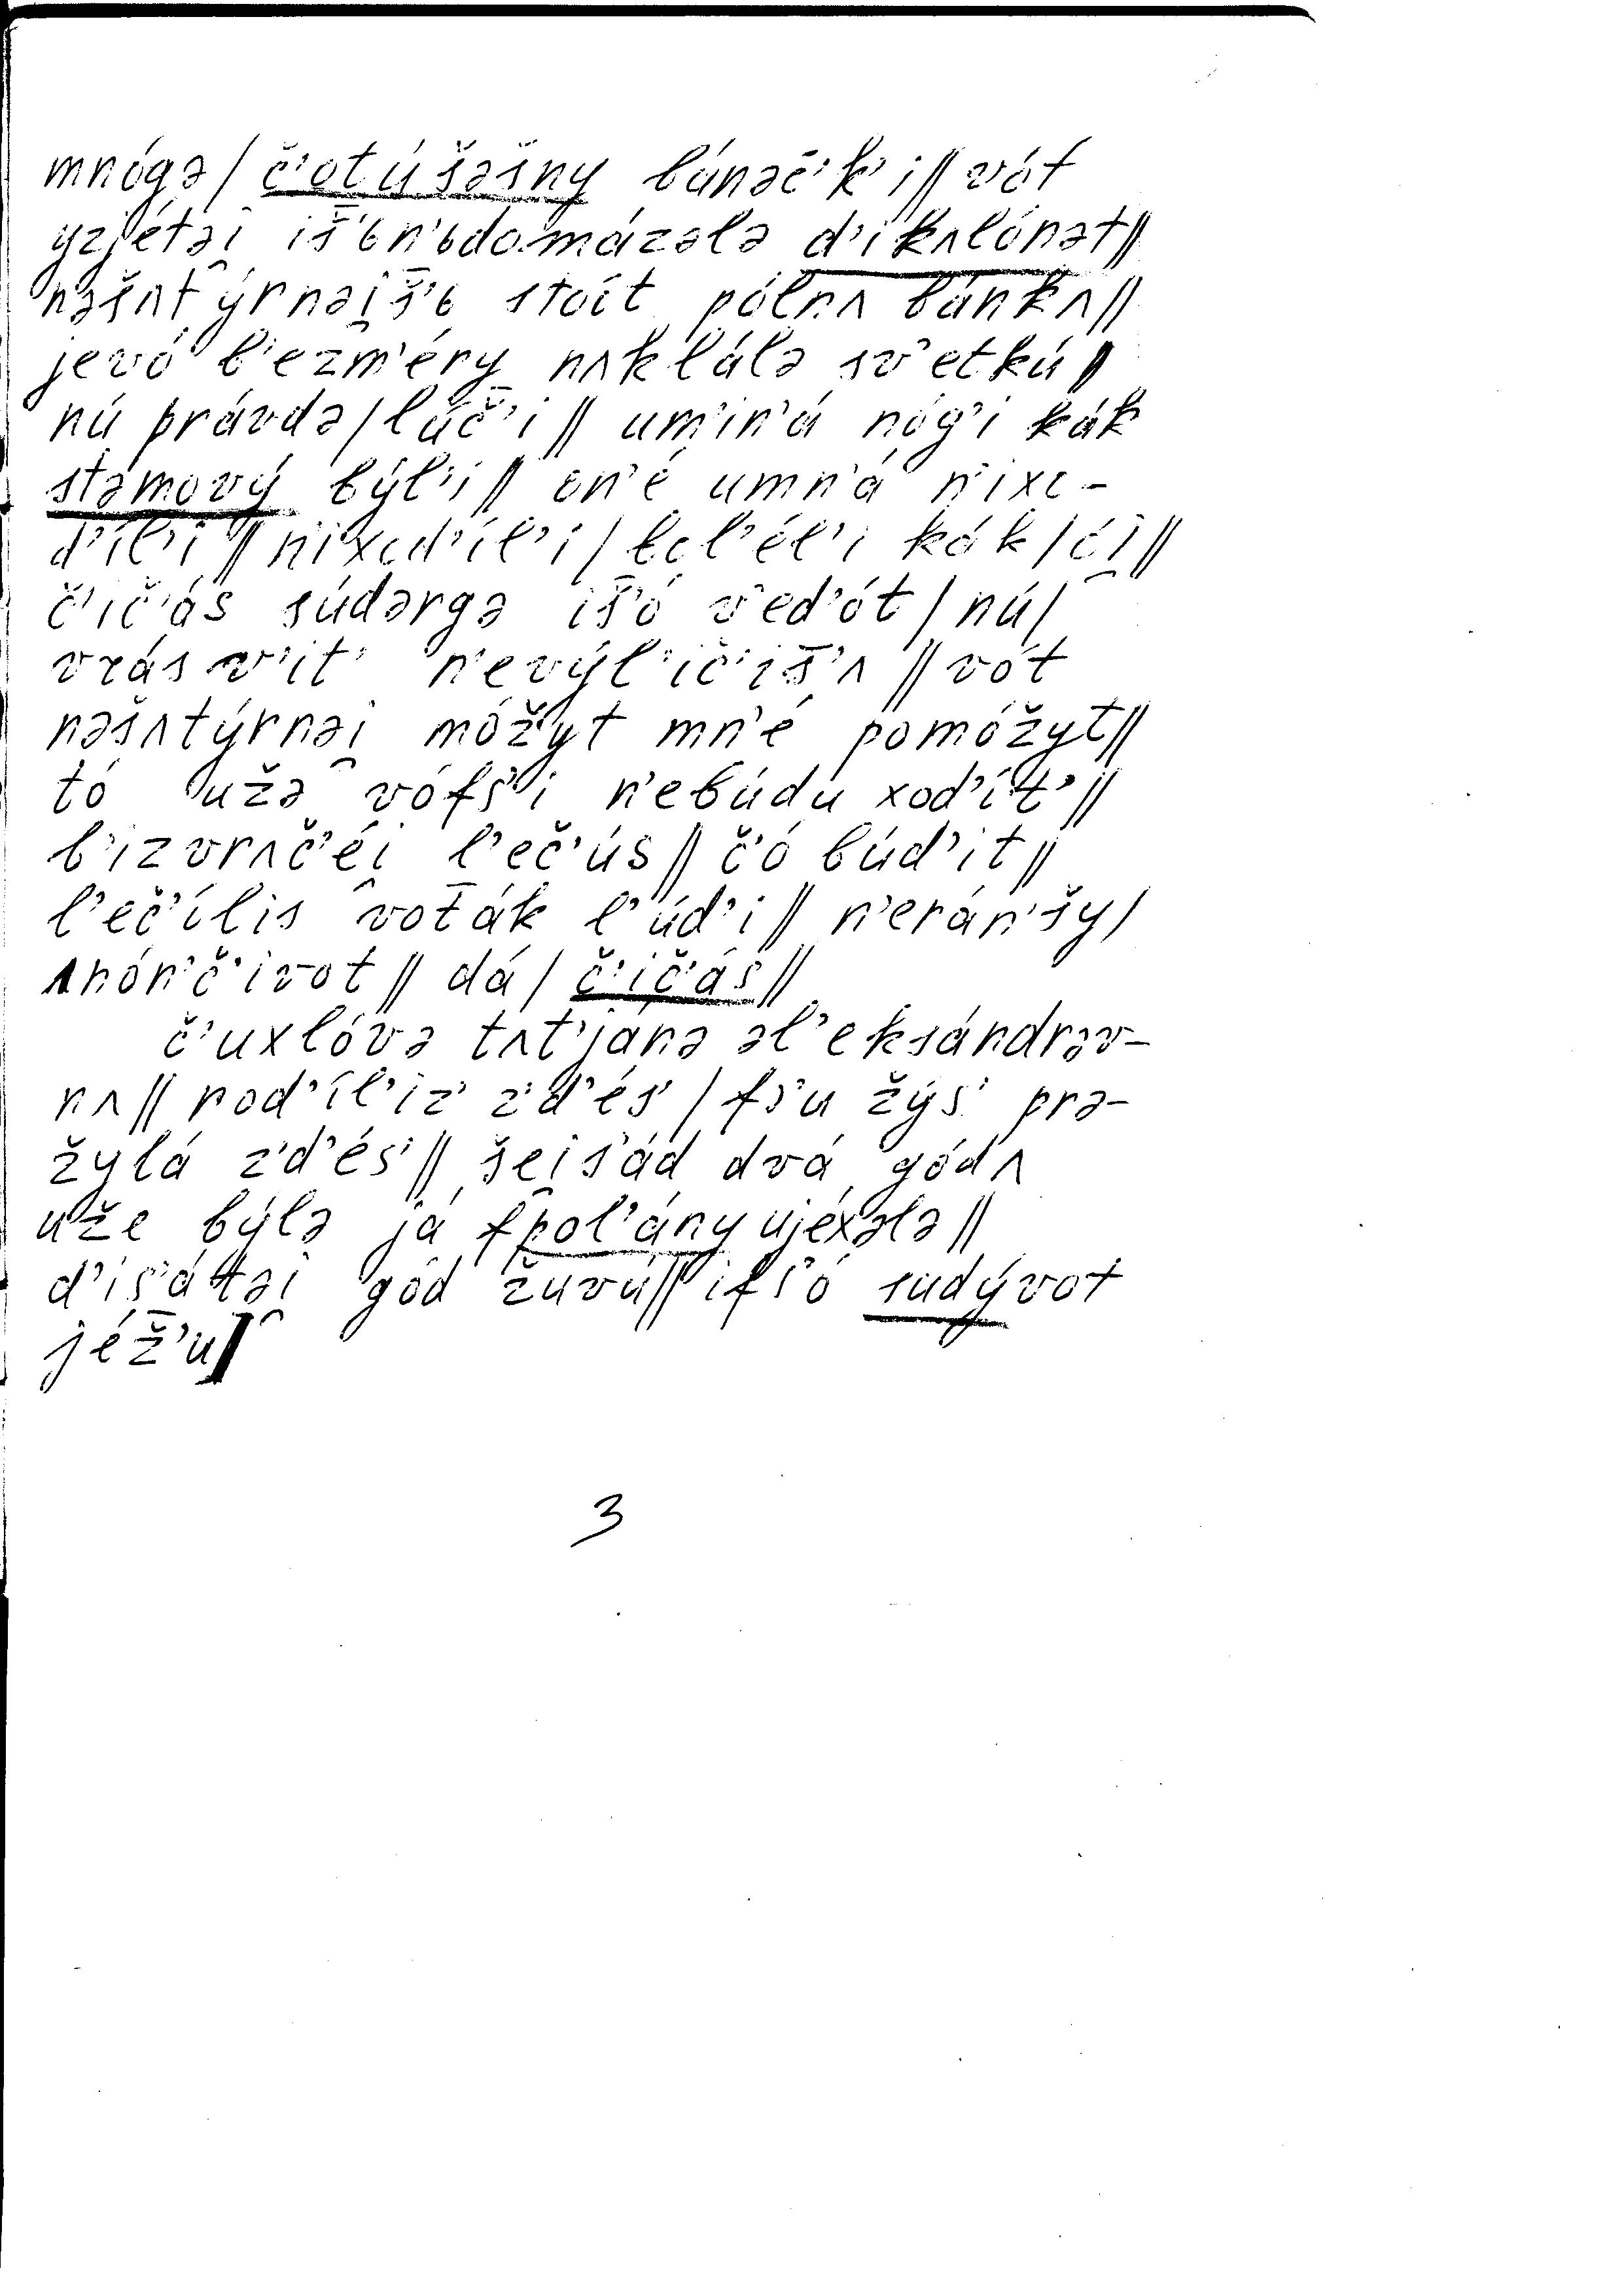 mnógə / č’otúšəšny bánəč’k’i // vót
yzjétəi̯ iš̄’ьn’ьdomázələ d’ikʌlónət //
nəšʌtýrnəi̯š̄’ь stoít pólnʌ bánkʌ //
jevó b’ezm’éry nʌklálə sv’etkú //
nú právdə / lúč̄’i // um’in’á nóg’i kák
stəmový býl’i // on’é umn’á n’ixo-
d’íl’i // n’ixod’íl’i / bol’él’i kák / ói̯ //
č’ič’ás súdərgə iš̄’ó v’ed’ót / nú /
vrás v’it’ n’evýl’ič’iš̄’ʌ // vót
nəšʌtýrnəi̯ móžyt mn’é pomóžyt //
tó užə vófs’i n’ebúdu xod’ít’ //
b’izvrʌč’éi̯ l’eč’ús // č’ó búd’it //
l’eč’ílis vot̄ák l’úd’i // n’erán’šy /
ʌnón’č’ivot // dá / č’ič’ás //
č’uxlóvə tʌt’janə əl’eksándrəv-
nʌ // rod’íl’iz’ z’d’és’ / fs’u žýs’ prə-
žylá z’d’és’ // šei̯s’ád dvá gódʌ
uže býlə já fpol’ány ujéxələ //
d’is’átəi̯ gód žuvú // ifs’ó sudývot
jéž̄’u //
3